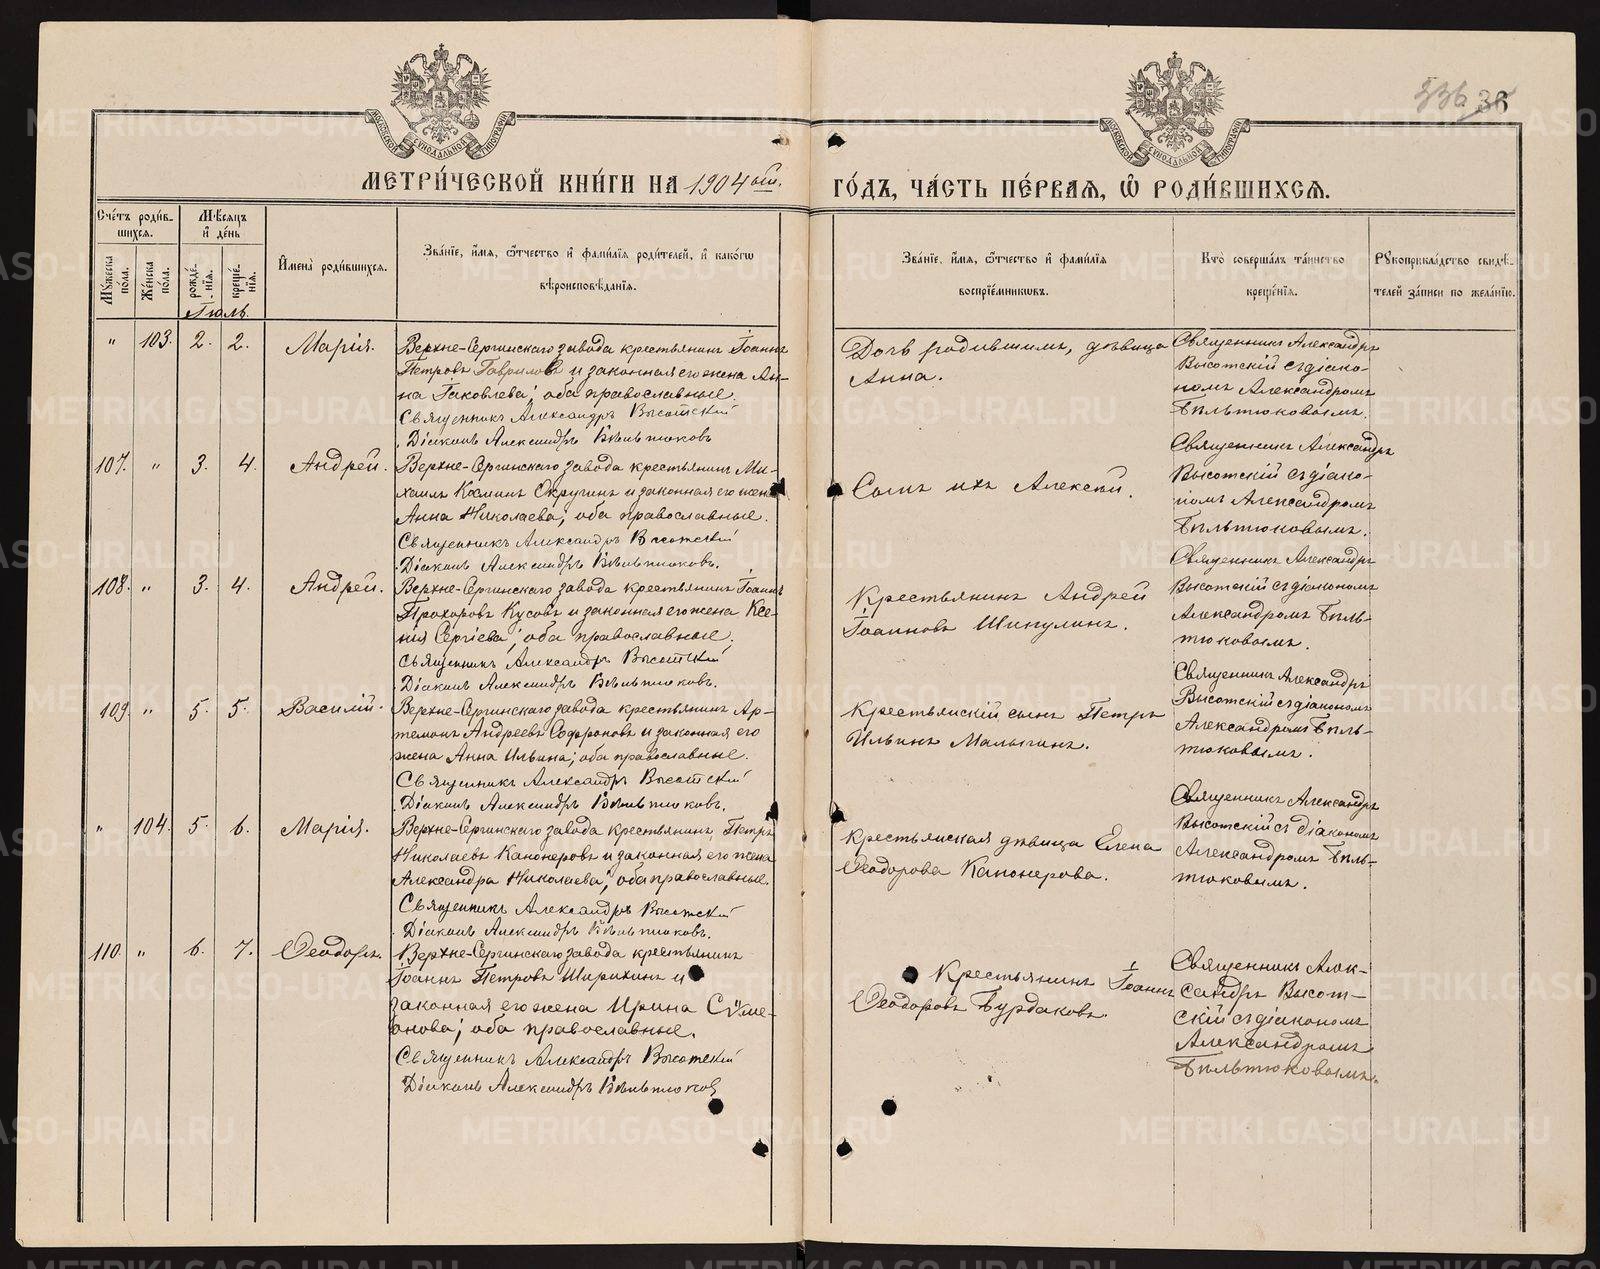 336 36
МОСКОВСКОЙ СѴНОДАЛЬНОЙ ТИПОГРАФІИ
МОСКОВСКОЙ СѴНОДАЛЬНОЙ ТИПОГРАФІИ
МЕТРИ́ЧЕСКОЙ КНИ́ГИ НА 1904 ый.
ГО́ДЪ, ЧА́СТЬ ПЕ́РВАЯ, Ѡ҆ РОДИ́ВШИХСЯ.
Сче́тъ роди́в-
шихся.
Мꙋ́жеска по́ла.
Же́нска по́ла.
Мѣ́сяцъ
и҆ де́нь
рожде́-
нїя.
креще́-
нїя.
Іюль.
И҆мена̀ роди́вшихся.
Зва́нїе, и҆́мя, ѻ҆́тчество и҆ фами́лїя роди́телей, и҆ како́гѡ
вѣроисповѣ́данїя.
Зва́нїе, и҆́мя, ѻ҆́тчество и҆ фами́лїя
воспрїе́мникѡвъ.
Кто̀ соверша́лъ та́инство
креще́нїя.
Рꙋкоприкла́дство свидѣ́-
телей за́писи по жела́нїю.
" 103. 2. 2. Марія.
Верхне-Сергинскаго завода крестьянинъ Іоаннъ
Петровъ Гавриловъ и законная его жена Ан-
на Іаковлева; оба православные.
Священникъ Александръ Высотскій
Діаконъ Александръ Бѣльтюковъ
Дочь родившимъ, дѣвица
Анна.
Священникъ Александръ
Высотскій съ діако-
номъ Александромъ
Бѣльтюковымъ.
107. " 3. 4. Андрей.
Верхне-Сергинскаго завода крестьянинъ Ми-
хаилъ Косминъ Окружинъ и законная его жена
Анна Николаева; оба православные.
Священникъ Александръ Высотскій
Діаконъ Александръ Бѣльтюковъ.
Сынъ ихъ Алексѣй.
Священникъ Александръ
Высотскій съ діако-
номъ Александромъ
Бѣльтюковымъ.
108. " 3. 4. Андрей.
Верхне-Сергинскаго завода крестьянинъ Іоаннъ
Прохоровъ Кусовъ и законная его жена Ксе-
нія Сергіева; оба православные.
Священникъ Александръ Высотскій
Діаконъ Александръ Бѣльтюковъ.
Крестьянинъ Андрей
Іоанновъ Шипулинъ.
Священникъ Александръ
Высотскій съ діакономъ
Александромъ Бѣль-
тюковымъ.
109. " 5. 5. Василій.
Верхне-Сергинскаго завода крестьянинъ Ар-
темонъ Андреевъ Софроновъ и законная его
жена Анна Ильина; оба православные.
Священникъ Александръ Высотскій
Діаконъ Александръ Бѣльтюковъ.
Крестьянскій сынъ Петръ
Ильинъ Малыгинъ.
Священникъ Александръ
Высотскій съ діакономъ
Александромъ Бѣль-
тюковымъ.
" 104. 5. 6. Марія.
Верхне-Сергинскаго завода крестьянинъ Петръ
Николаевъ Канонеровъ и законная его жена
Александра Николаева; оба православные.
Священникъ Александръ Высотскій
Діаконъ Александръ Бѣльтюковъ.
Крестьянская дѣвица Елена
Ѳеодорова Канонерова.
Священникъ Александръ
Высотскій съ діакономъ
Александромъ Бѣль-
тюковымъ.
110. " 6. 7. Ѳеодоръ.
Верхне-Сергинскаго завода крестьянинъ
Іоаннъ Петровъ Ширихинъ и
законная его жена Ирина Симе-
онова; оба православные.
Священникъ Александръ Высотскій
Діаконъ Александръ Бѣльтюковъ
Крестьянинъ Іоаннъ
Ѳеодоровъ Бурдаковъ.
Священникъ Алек-
сандръ Высот-
скій съ діакономъ
Александромъ
Бѣльтюковымъ.
METRIKI.GASO-URAL.RU